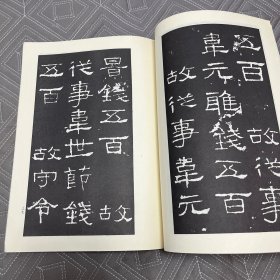 五百 故從事
韋元雍錢五百
故從事韋元
景錢五百 故
從事韋世節錢
五百 故守令